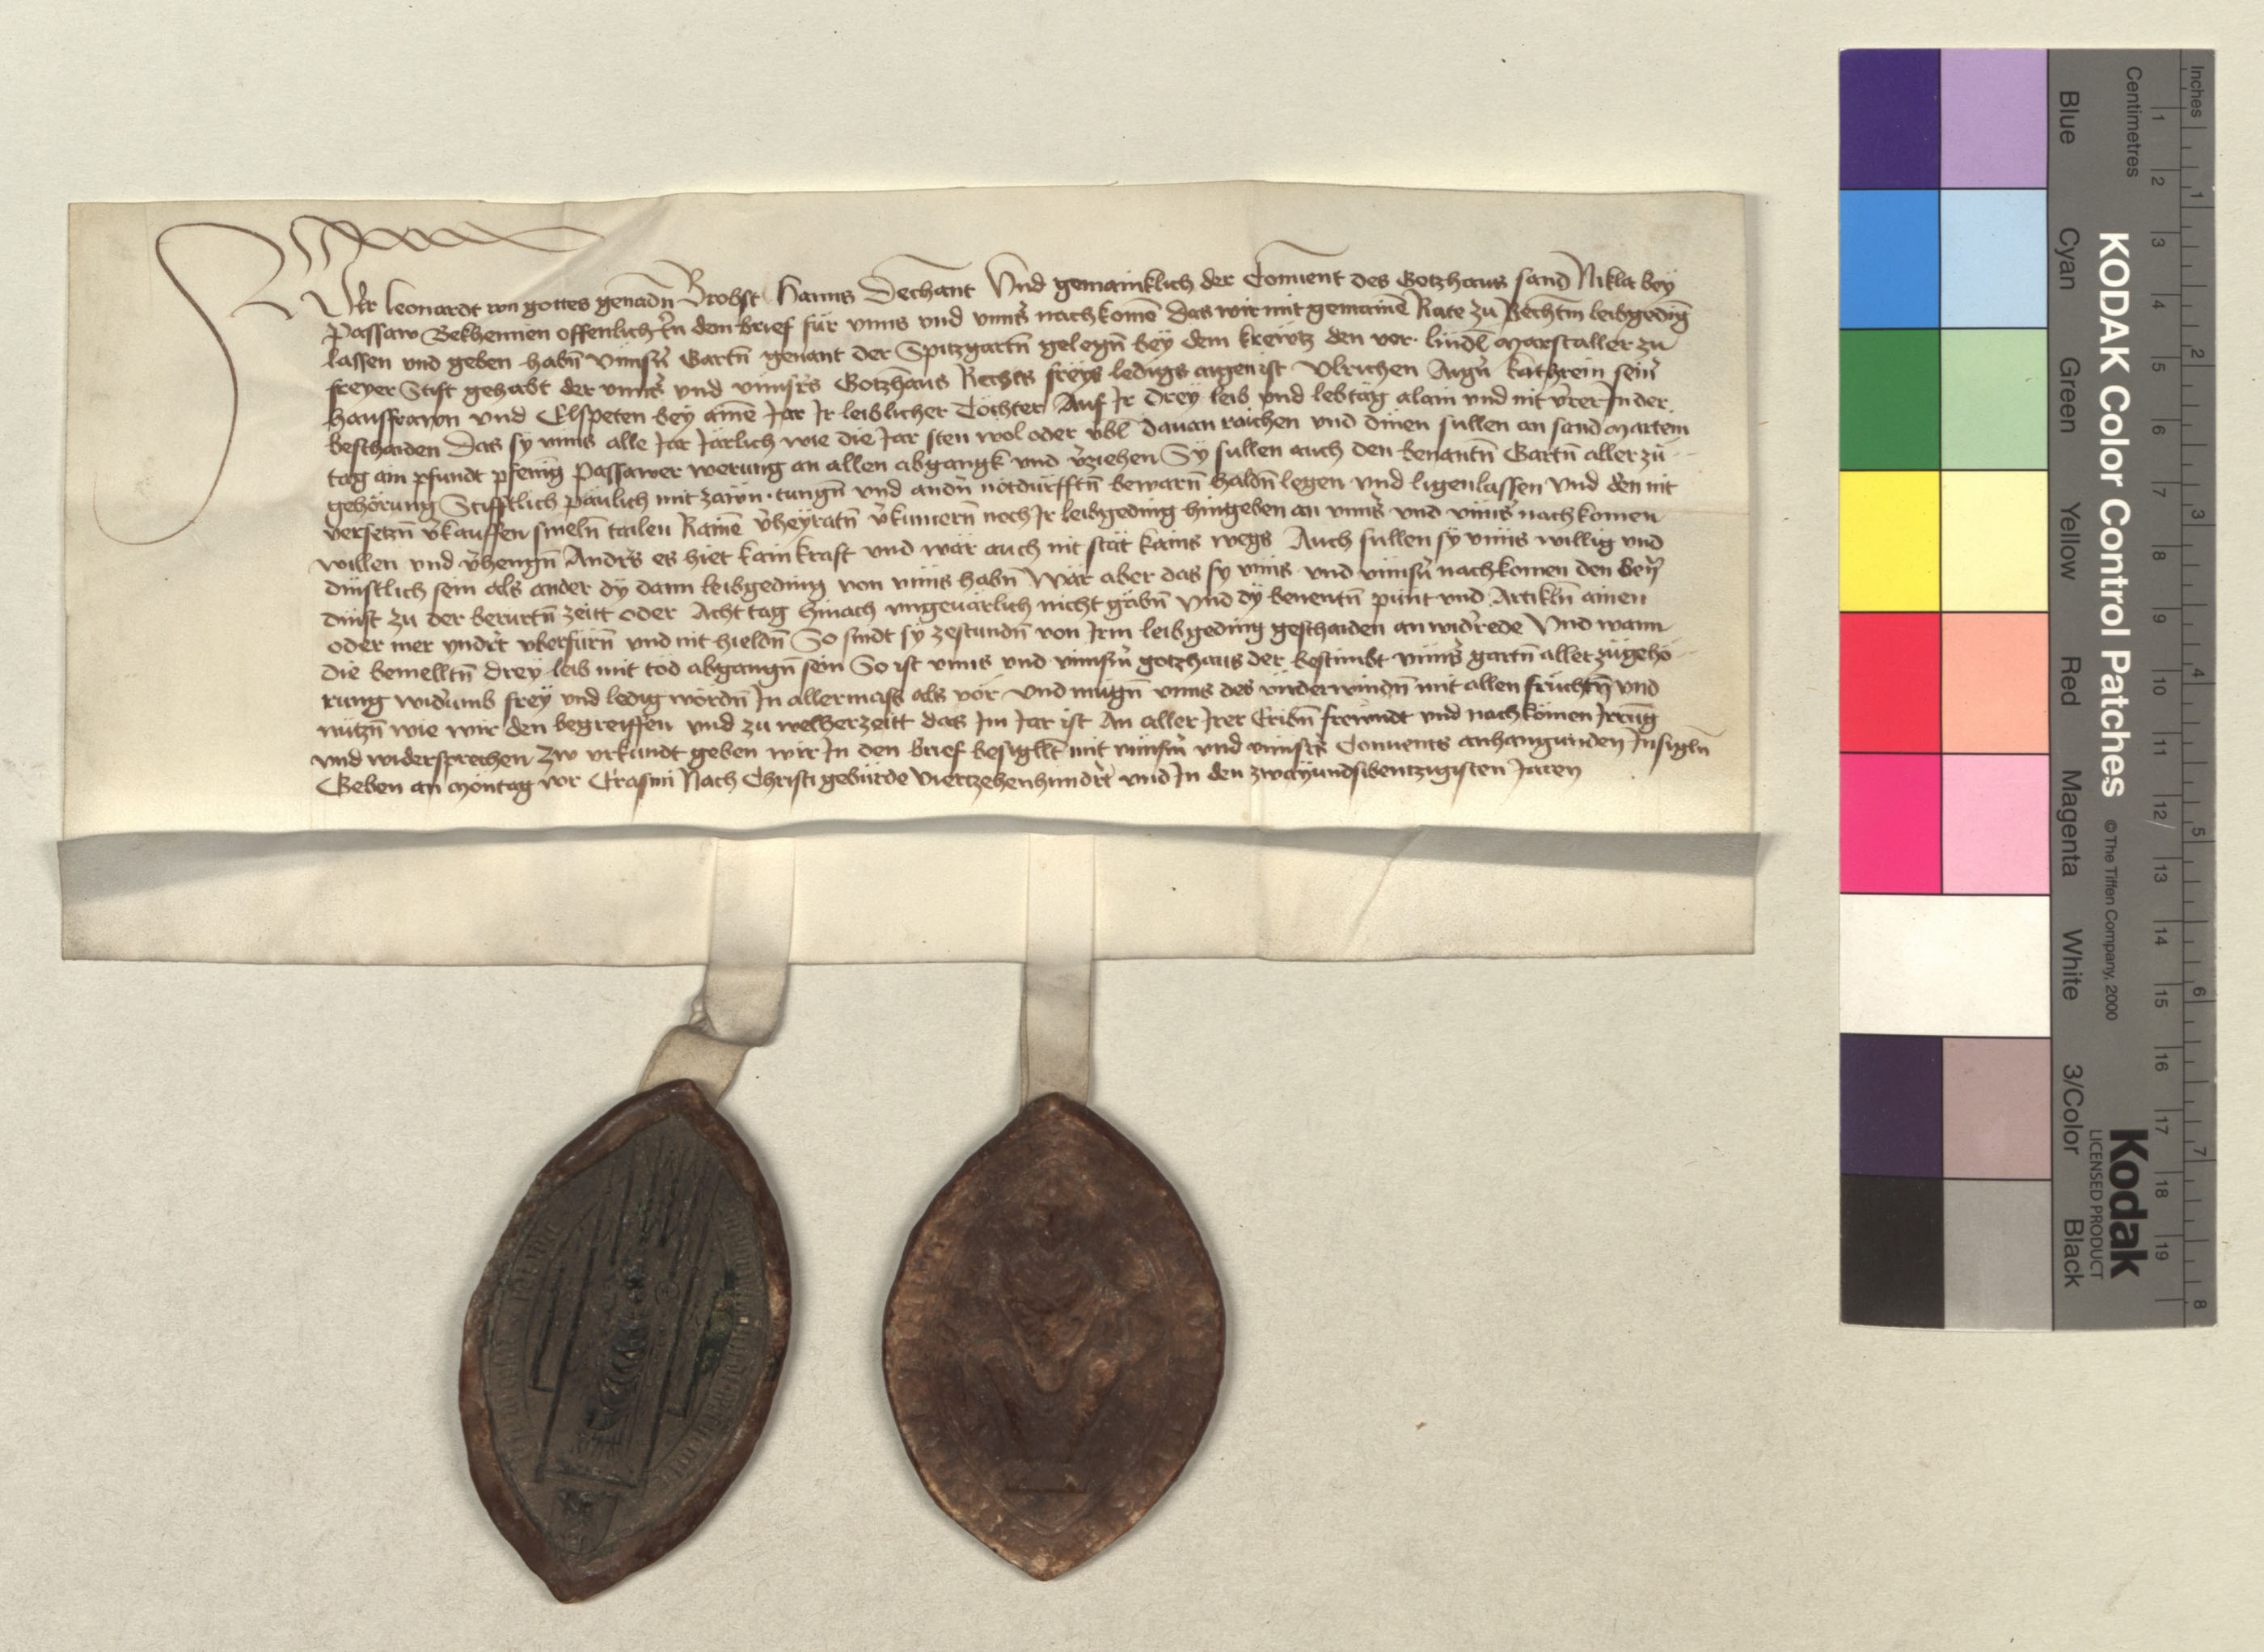 Wir leonardt von gottes genadn̄ Brobst Hanns Dechant Vnd gemainklich der Conuent des Gotzhaus sand Nikla bey
Passaw Bekhennen offenlich in dem brief für vnns vnd vnns̄ nachkomē das wir mit gemainē Rate zu Rechtm̄ leibgediḡ
lassen vnd geben habn̄ vnnsn̄ Gartn̄ genant der Spitzgartn̄ gelegn̄ bey dem kreutz den vor lindl marstaller zu
freyer Stift gehabt der vnns̄ vnd vnnsr̄s Gotzhaus Rechts freys ledigs aigen ist Vlrichen kathrein sein̄
hausfrawn vnd Elspeten bey ainē Jar Jr leiblicher Tochter Auf Jr drey leib vnd lebtäg alain vnd nit v̄rer Jn der
beschaiden Das sy vnns alle Jar Järlich wie die Jar sten wol oder vbl dauan raichen vnd dinen sullen an sand martein
tag ain pfundt pfeniḡ Passawer werung an allen abgangk vnd v̄ziehen Sy sullen auch den benantn̄ Gartn̄ aller zu
gehörung Stifftlich päulich mit zäwn tungn̄ vnd andn̄ notdürfftn̄ bewarn̄ haldn̄ legen vnd ligenlassen Vnd den nit
versetzn̄ v̄kauffen smeln tailen Rainē v̄heyratn̄ v̄kumern̄ noch Jr leibgeding hingeben an vnns̄ vnd vnns̄ nachkomen
willen vnd v̄hengn̄ Andr̄s es hiet kain kraft vnd wär auch nit stät kains wegs Auch sullen sy vnns willig vnd
dinstlich sein als ander dy dann leibgeding von vnns habn̄ Wär aber das sy vnns vnd vnnsn̄ nachkomen den
dinst zu der berurtn̄ zeitt oder Acht tag hinach vngeuärlich nicht gäbn̄ Vnd dy benentn̄ punt vnd Artikln̄ ainen
oder mer vndr̄t vberfürn̄ vnd nit hieldn̄ So sindt sy zestundn̄ von Jrm leibgeding geschaiden an widr̄rede Vnd wann
die bemelltn̄ drey leib mit tod abgangn̄ sein So ist vnns vnd vnnsm̄ gotzhaus der bestimbt vnns̄ gartn̄ aller zugehö
rung widumb frey vnd ledig wordn̄ Jn allermass als vor Vnd mugn̄ vnns des vnderwindn̄ mit allen früchtn̄ vnd
nützn̄ wie wir den begreiffen vnd zu welher zeitt das Jm Jar ist An aller Jrer Eribn̄ frewndt vnd nachkömen Jrruḡ
vnd widersprechen Zw vrkundt geben wir Jn den brief besigllt̄ mit vnnsm̄ vnd vnnsr̄s Conuents anhangunden Jnsigln̄
Geben an möntag vor Erasmi Nach Christi gebürde Viertzehenhundr̄t vnd Jn den zwayundsibentzigisten Jaren
Inches
Centimetres
KODAK Color Control Patches
© The Tiffen Company, 2000
Kodak
LICENSED PRODUCT
Blue
Cyan
Green
Yellow
Red
Magenta
White
3/Color
Black
1 2 3 4 5 6 7 8 9 10 11 12 13 14 15 16 17 18 19
1 2 3 4 5 6 7 8